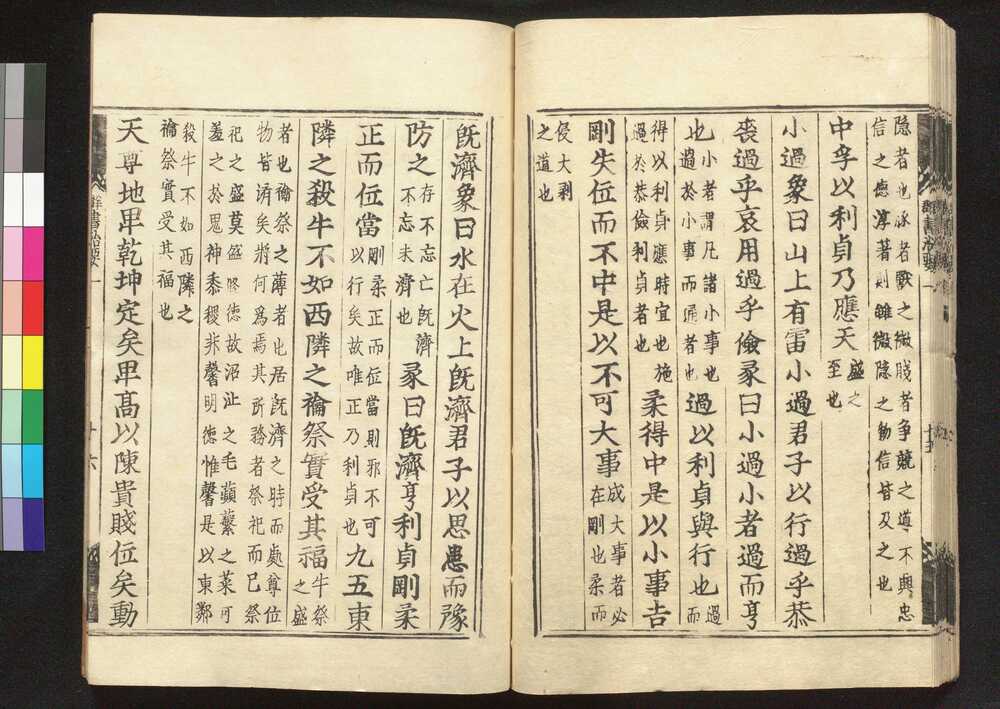 隱者也豚者獸之微賤者爭競之道不興忠
信之德淳著則雖微隱之物信皆及之也
中孚以利貞乃應天盛之
至也
小過象曰山上有雷小過君子以行過乎恭
喪過乎哀用過乎儉彖曰小過小者過而亨
也小者謂凡諸小事也
過於小事而通者也過以利貞與行也過而
得以利貞應時宜也施
過於恭儉利貞者也柔得中是以小事吉
剛失位而不中是以不可大事成大事者必
在剛也柔而
侵大剥
之道也
群書治要一
十五
旣濟象曰水在火上旣濟君子以思患而豫
防之存不忘亡旣濟
不忘未濟也彖曰旣濟亨利貞剛柔
正而位當剛柔正而位當則邪不可
以行矣故唯正乃利貞也九五東
隣之殺牛不如西隣之禴祭實受其福牛祭
之盛
者也禴祭之薄者也居旣濟之時而處尊位
物皆濟矣將何爲焉其所務者祭祀而已祭
祀之盛莫盛脩德故沼沚之毛蘋蘩之菜可
羞之於鬼神黍稷非馨明德惟馨是以東鄰
殺牛不如西隣之
禴祭實受其福也
天尊地卑乾坤定矣卑高以陳貴賤位矣動
群書治要一
十六